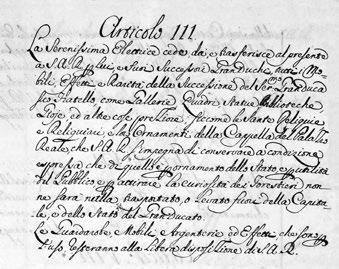 Articolo III
La Serenissima Elettrice cede, dà, e trasferisce al presente
a S.A.R. per Lui, e Suoi Successori GranDuchi, tutti i Mo-
bili, Effetti e Rarità della Successione del Ser.mo GranDuca
suo Fratello, come Gallerie, Quadri, Statue, Biblioteche
Gioje, ed altre cose preziose, siccome le Sante Reliquie
e Reliquiari, e Ornamenti della Cappella del Palazzo
Reale, che S.A.R. s'impegna di conservare a condizione
espressa che di quello è per ornamento dello Stato, e per utilità
del Pubblico e per attirare la curiosità dei Forestieri non
ne sarà nulla trasportato, o levato fuori della Capita-
le, e dello Stato del GranDucato.
Le Guardarobe, Mobili, Argenterie ed Effetti che son per
uso, resteranno alla Libera disposizione di S.A.R.